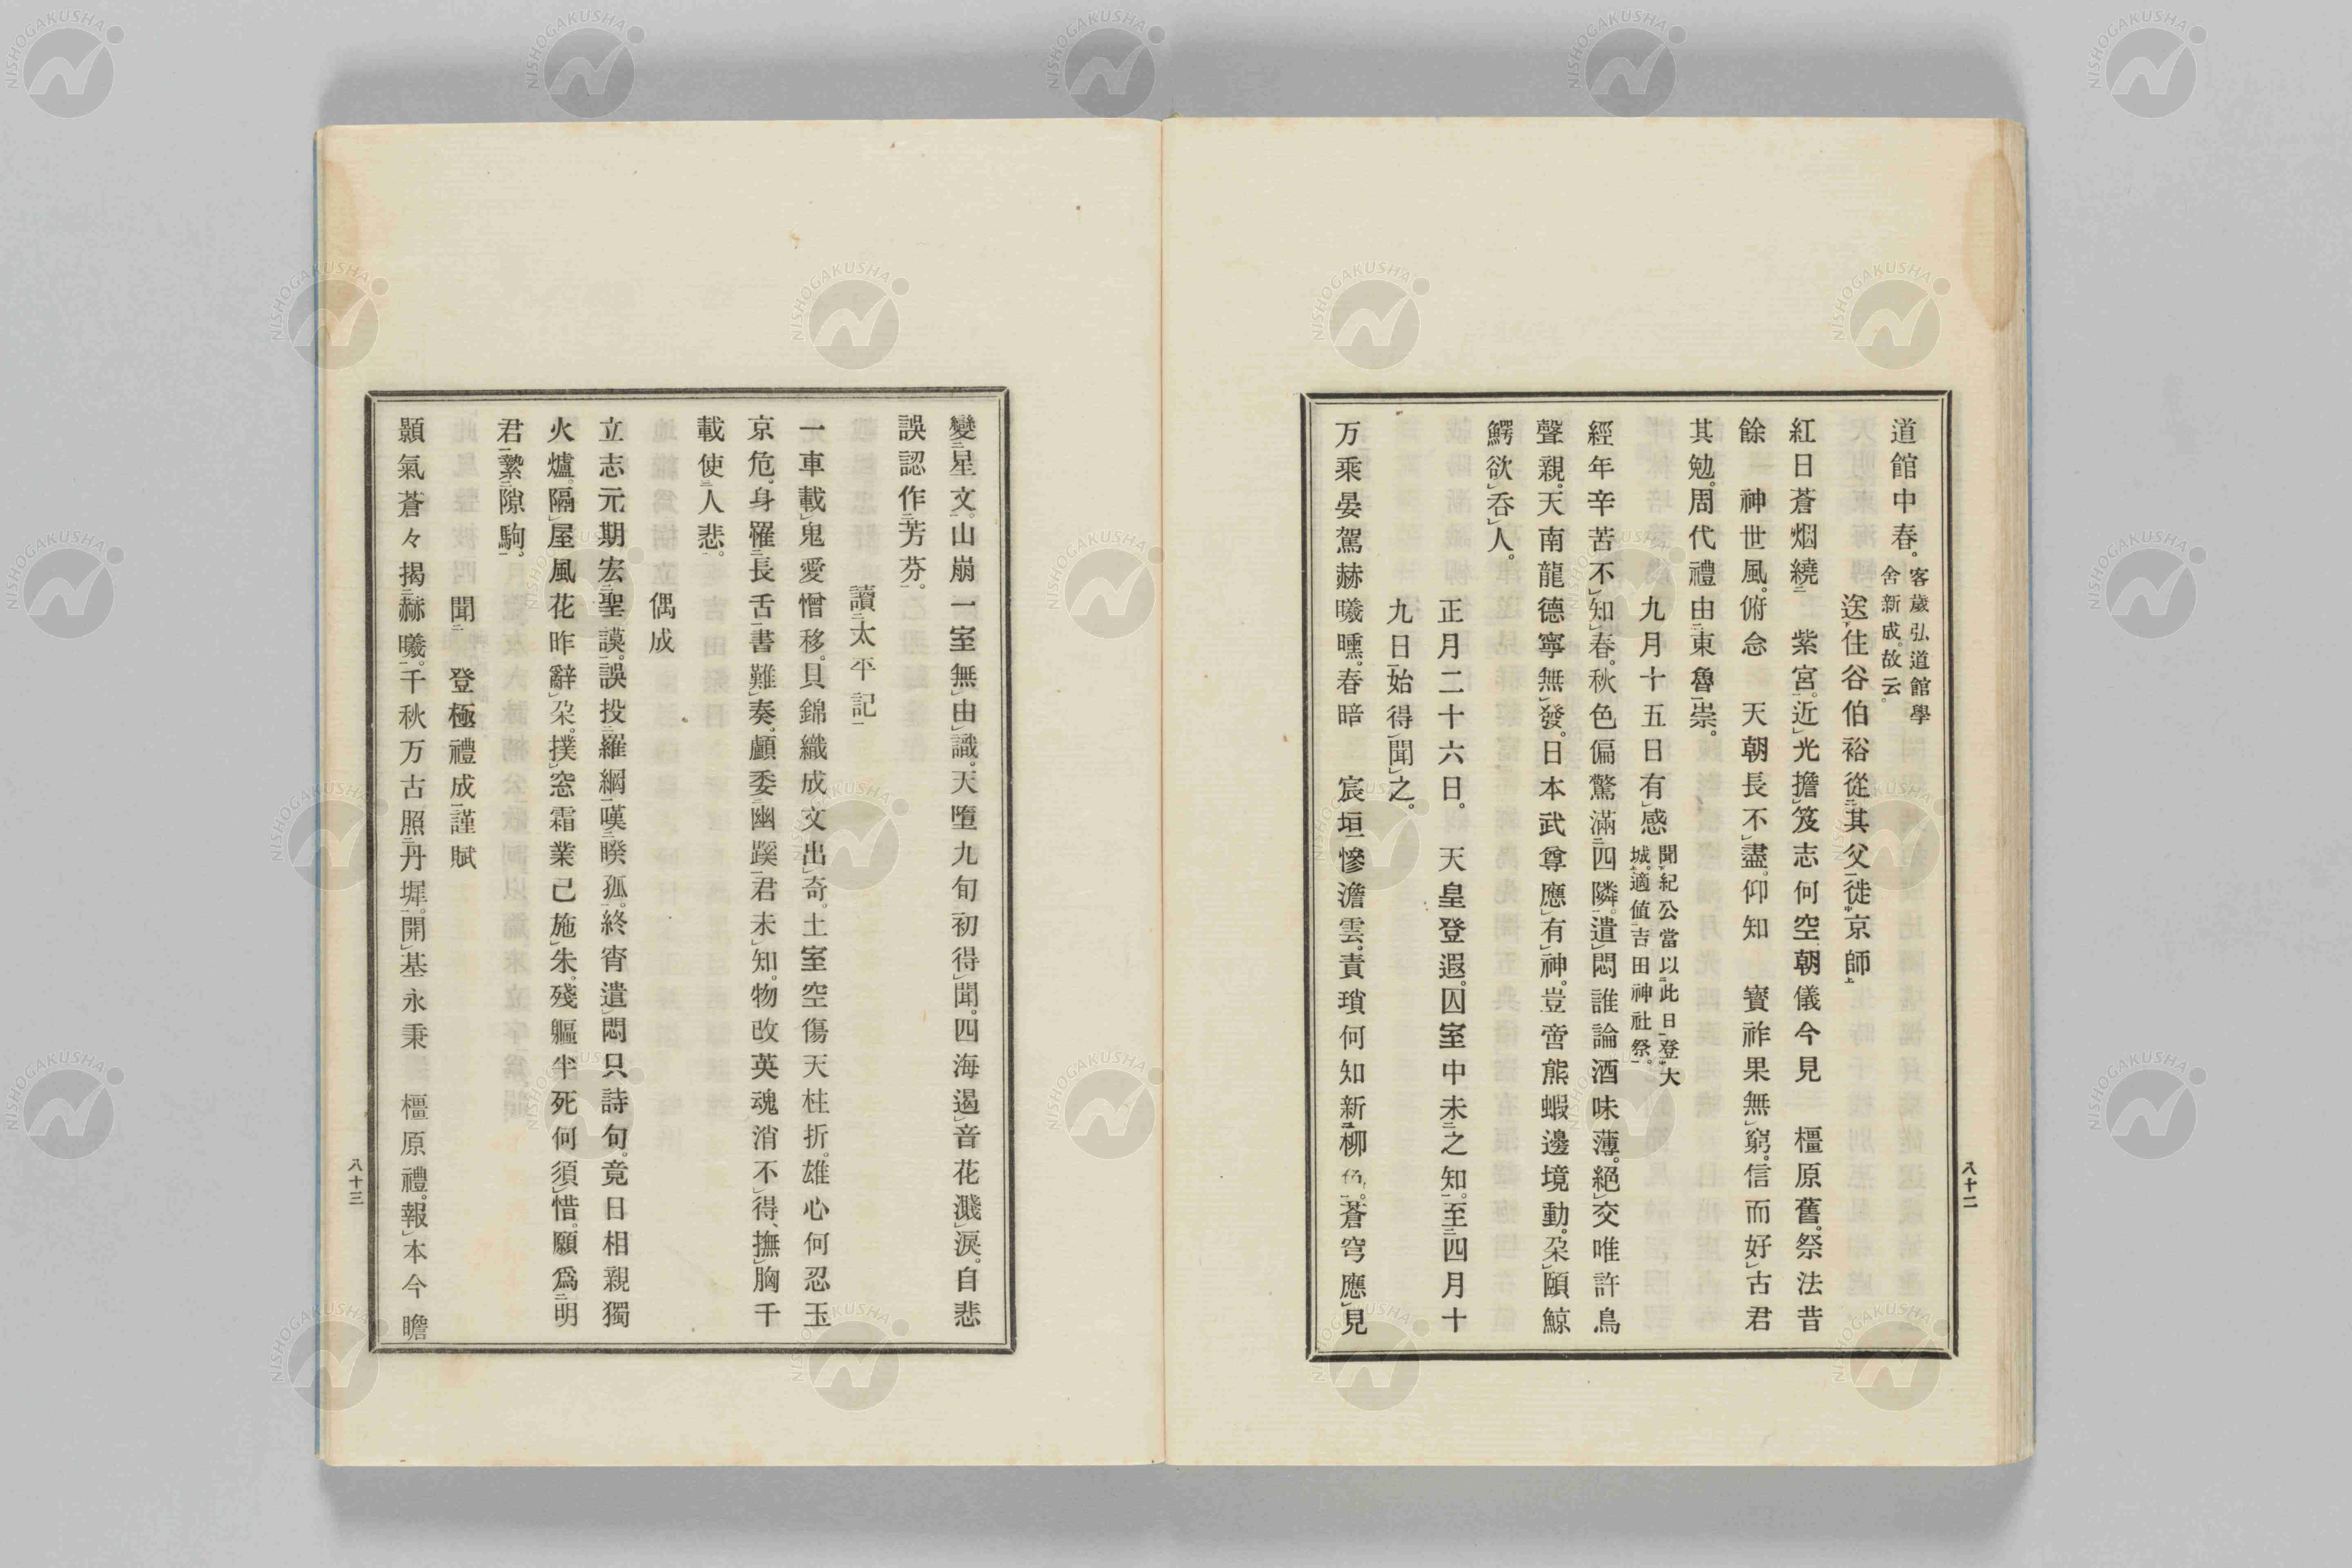 道館中春。客歲弘道館學
舍新成。故云。
送住谷伯裕從其父徙京師
紅日蒼烟繞紫宮。近光擔笈志何空。朝儀今見橿原舊。祭法昔
餘神世風。俯念天朝長不盡。仰知寶祚果無窮。信而好古君
其勉。周代禮由東魯崇。
九月十五日有感聞紀公當以此日登大
城。適値吉田神社祭。
經年辛苦不知春。秋色偏驚滿四隣。遣悶誰論酒味薄。絕交唯許鳥
聲親。天南龍德寧無發。日本武尊應有神。豈啻熊蝦邊境動。朶頤鯨
鰐欲呑人。
正月二十六日。天皇登遐。囚室中未之知。至四月十
九日始得聞之。
万乘晏駕赫曦曛。春暗宸垣慘澹雲。責瑣何知新柳色。蒼穹應見
八十二
變星文。山崩一室無由識。天墮九旬初得聞。四海遏音花濺淚。自悲
誤認作芳芬。
讀太平記
一車載鬼愛憎移。貝錦織成文出奇。土室空傷天柱折。雄心何忍玉
京危。身罹長舌書難奏。顱委幽蹊君未知。物改英魂消不得、撫胸千
載使人悲。
偶成
立志元期宏聖謨。誤投羅網嘆睽孤。終宵遣悶只詩句。竟日相親獨
火爐。隔屋風花昨辭朶。撲窓霜葉已施朱。殘軀半死何須惜。願爲明
君縶隙駒。
聞登極禮成謹賦
顥氣蒼々揭赫曦。千秋万古照丹墀。開基永秉橿原禮。報本今瞻
八十三
NISHOGAKUSHA